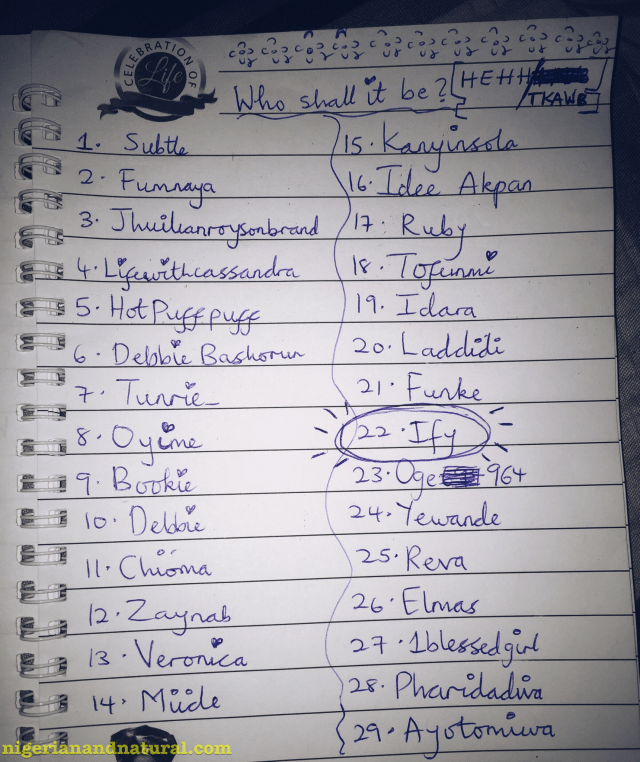 CELEBRATION OF
Life
Who shall it be?
HEHH
TKAWB
1. Subtle
2. Fumnaya
3. Jhuilianroysonbrand
4. Lifewithcassandra
5. Hot Puff puff
6. Debbie Bashorun
7. Tunrie_
8. Oyime
9. Bookie
10. Debbie
11. Chioma
12. Zaynab
13. Veronica
14. Miide
15. Kanyinsola
16. Idee Akpan
17. Ruby
18. Tofunmi
19. Idara
20. Laddidi
21. Funke
22. Ify
23. Oge 964
24. Yewande
25. Reva
26. Elmas
27. 1blessedgirl
28. Pharidadiva
29. Ayotomiwa
nigerianandnatural.com